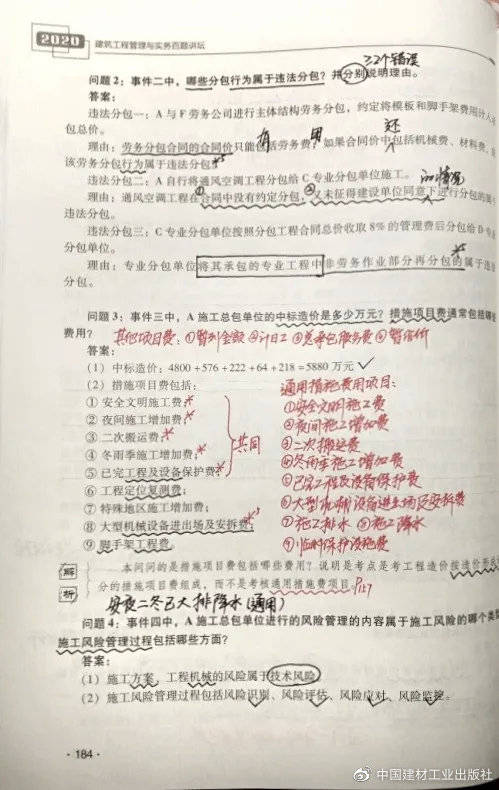 2020 建筑工程管理与实务百题讲坛
≥2个错误
问题2：事件二中，哪些分包行为属于违法分包？并分别说明理由。
答案：
违法分包一：A与F劳务公司进行主体结构劳务分包，约定将模板和脚手架费用计入
包总价。
有 用 还
理由：劳务分包合同的合同价只能包括劳务费，如果合同价中包括机械费、材料费，
该劳务分包行为属于违法分包。
违法分包二：A自行将通风空调工程分包给C专业分包单位施工。
的情况
理由：通风空调工程在①合同中没有约定分包，②又未征得建设单位同意下进行分包的属
违法分包。
违法分包三：C专业分包单位按照分包工程合同总价收取8%的管理费后分包给D专业
分包单位。
理由：专业分包单位将其承包的专业工程中非劳务作业部分再分包的属于违
分包。
问题3：事件三中，A施工总包单位的中标造价是多少万元？措施项目费通常包括哪些
费用？ 其他项目费：①暂列金额②计日工③总承包服务费④暂估价
答案：
（1）中标造价：4800+576+222+64+218=5880万元
（2）措施项目费包括：
①安全文明施工费；
②夜间施工增加费；
③二次搬运费；
④冬雨季施工增加费；
⑤已完工程及设备保护费；
⑥工程定位复测费；
⑦特殊地区施工增加费；
⑧大型机械设备进出场及安拆费；
⑨脚手架工程费。
共同
通用措施费用项目：
①安全文明施工费
②夜间施工增加费
③二次搬运费
④冬雨季施工增加费
⑤已完工程及设备保护费
⑥大型机械设备进出场及安拆费
⑦施工排水 ⑧施工降水
⑨临时保护设施费
解析 本问问的是措施项目费包括哪些费用？说明是考点是考工程造价按造价形
分的措施项目费组成，而不是考核通用措施费项目。P127
安夜二冬已大排降水（通用）
问题4：事件四中，A施工总包单位进行的风险管理的内容属于施工风险的哪个类
施工风险管理过程包括哪些方面？
答案：
（1）施工方案、工程机械的风险属于技术风险。
（2）施工风险管理过程包括风险识别、风险评估、风险应对、风险监控。
·184·
中国建材工业出版社